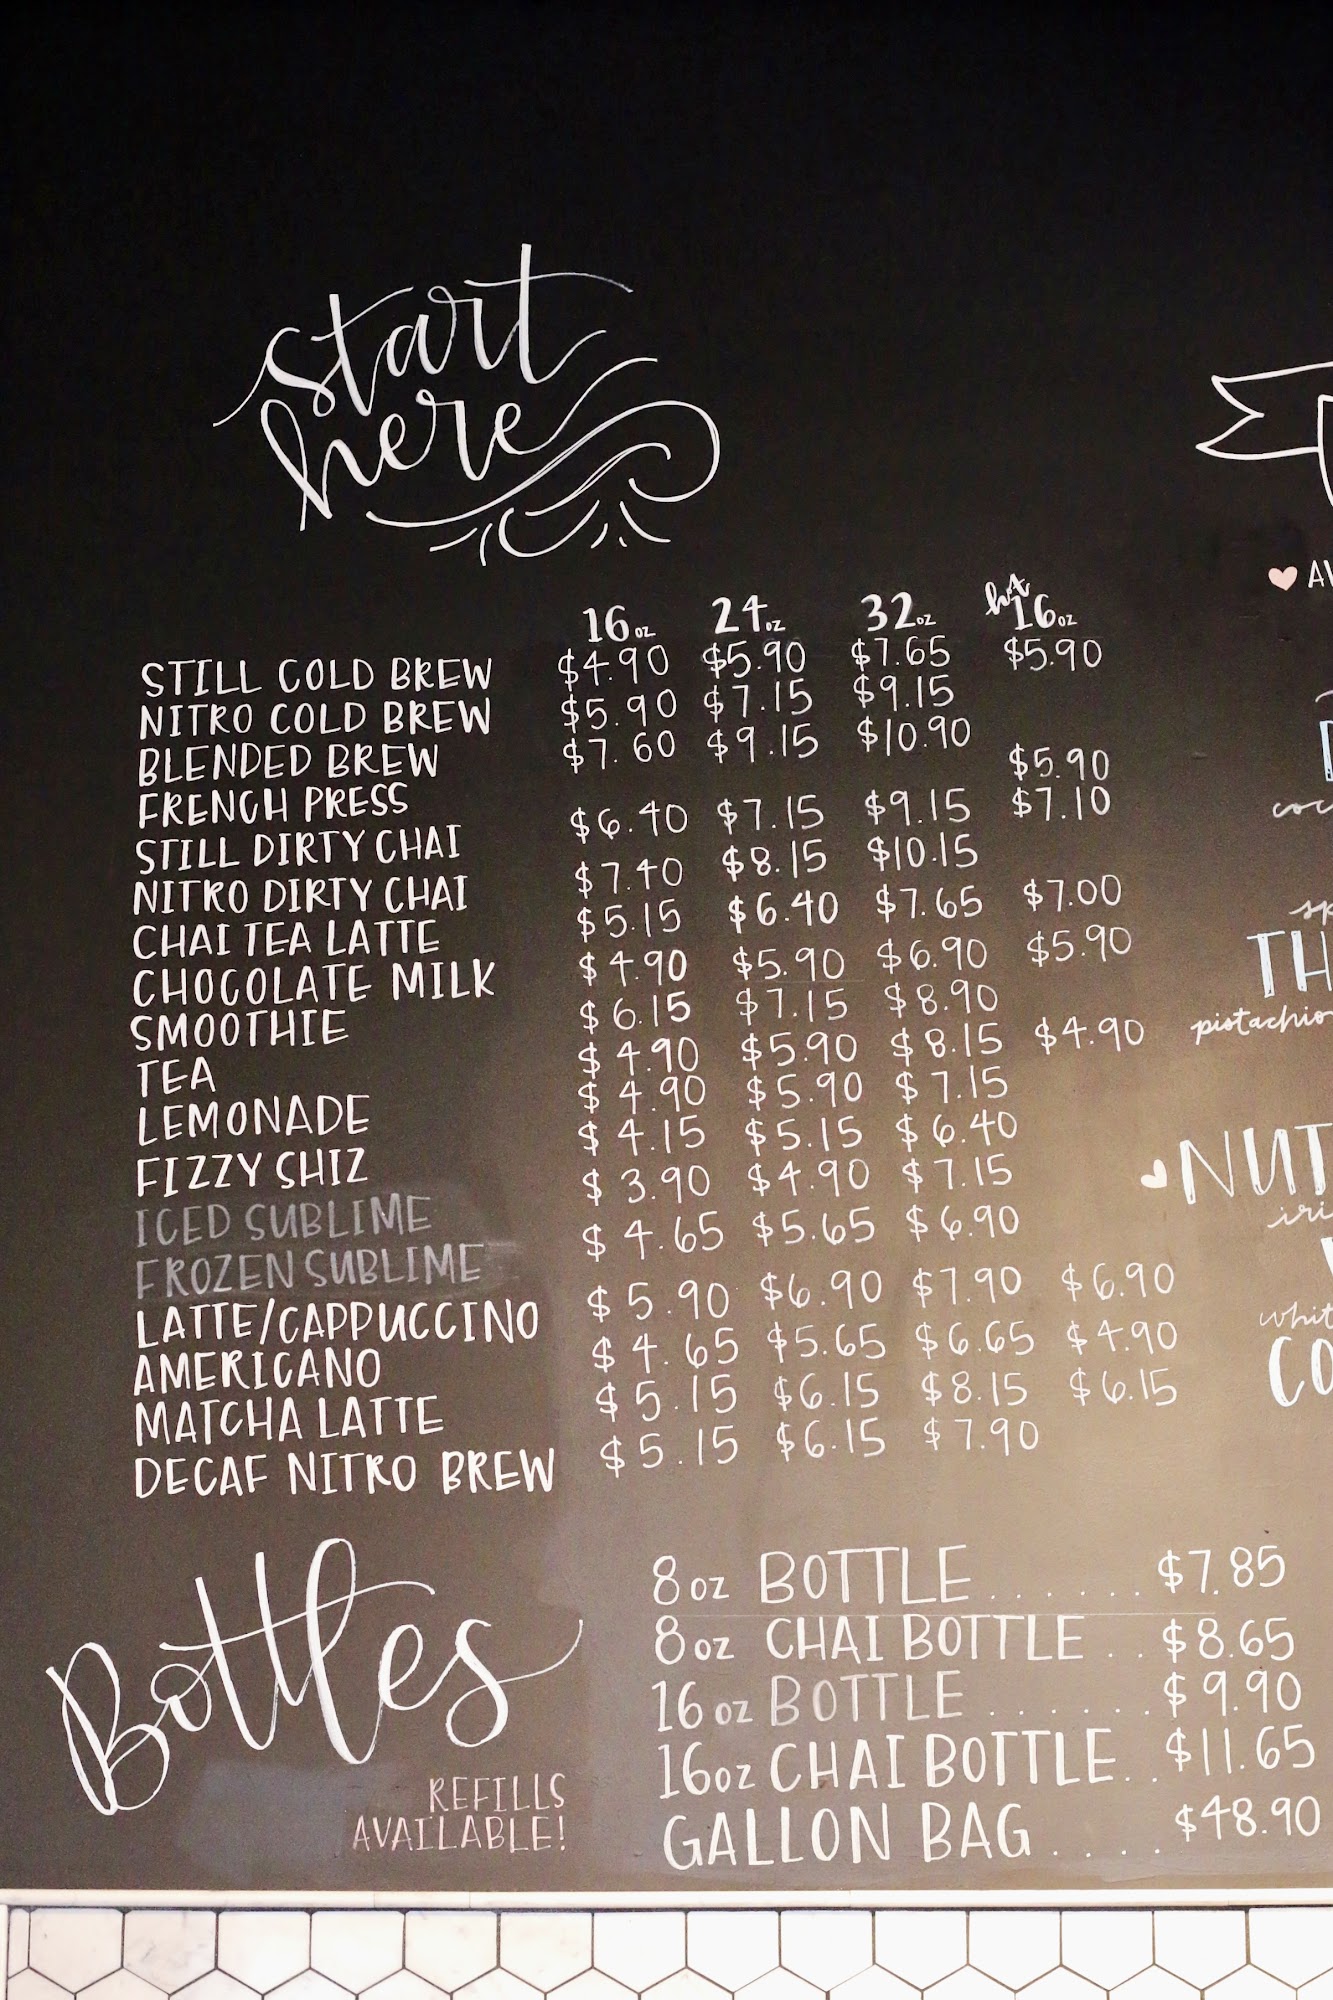 start
here
16oz 24oz 32oz hot 16oz
STILL COLD BREW $4.90 $5.90 $7.65 $5.90
NITRO COLD BREW $5.90 $7.15 $9.15
BLENDED BREW $7.60 $9.15 $10.90
FRENCH PRESS $5.90
STILL DIRTY CHAI $6.40 $7.15 $9.15 $7.10
NITRO DIRTY CHAI $7.40 $8.15 $10.15
CHAI TEA LATTE $5.15 $6.40 $7.65 $7.00
CHOCOLATE MILK $4.90 $5.90 $6.90 $5.90
SMOOTHIE $6.15 $7.15 $8.90
TEA $4.90 $5.90 $8.15 $4.90
LEMONADE $4.90 $5.90 $7.15
FIZZY SHIZ $4.15 $5.15 $6.40
ICED SUBLIME $3.90 $4.90 $7.15
FROZEN SUBLIME $4.65 $5.65 $6.90
LATTE/CAPPUCCINO $5.90 $6.90 $7.90 $6.90
AMERICANO $4.65 $5.65 $6.65 $4.90
MATCHA LATTE $5.15 $6.15 $8.15 $6.15
DECAF NITRO BREW $5.15 $6.15 $7.90
Bottles
REFILLS
AVAILABLE!
8oz BOTTLE....... $7.85
8oz CHAI BOTTLE.. $8.65
16oz BOTTLE....... $9.90
16oz CHAI BOTTLE.. $11.65
GALLON BAG..... $48.90
pistachio